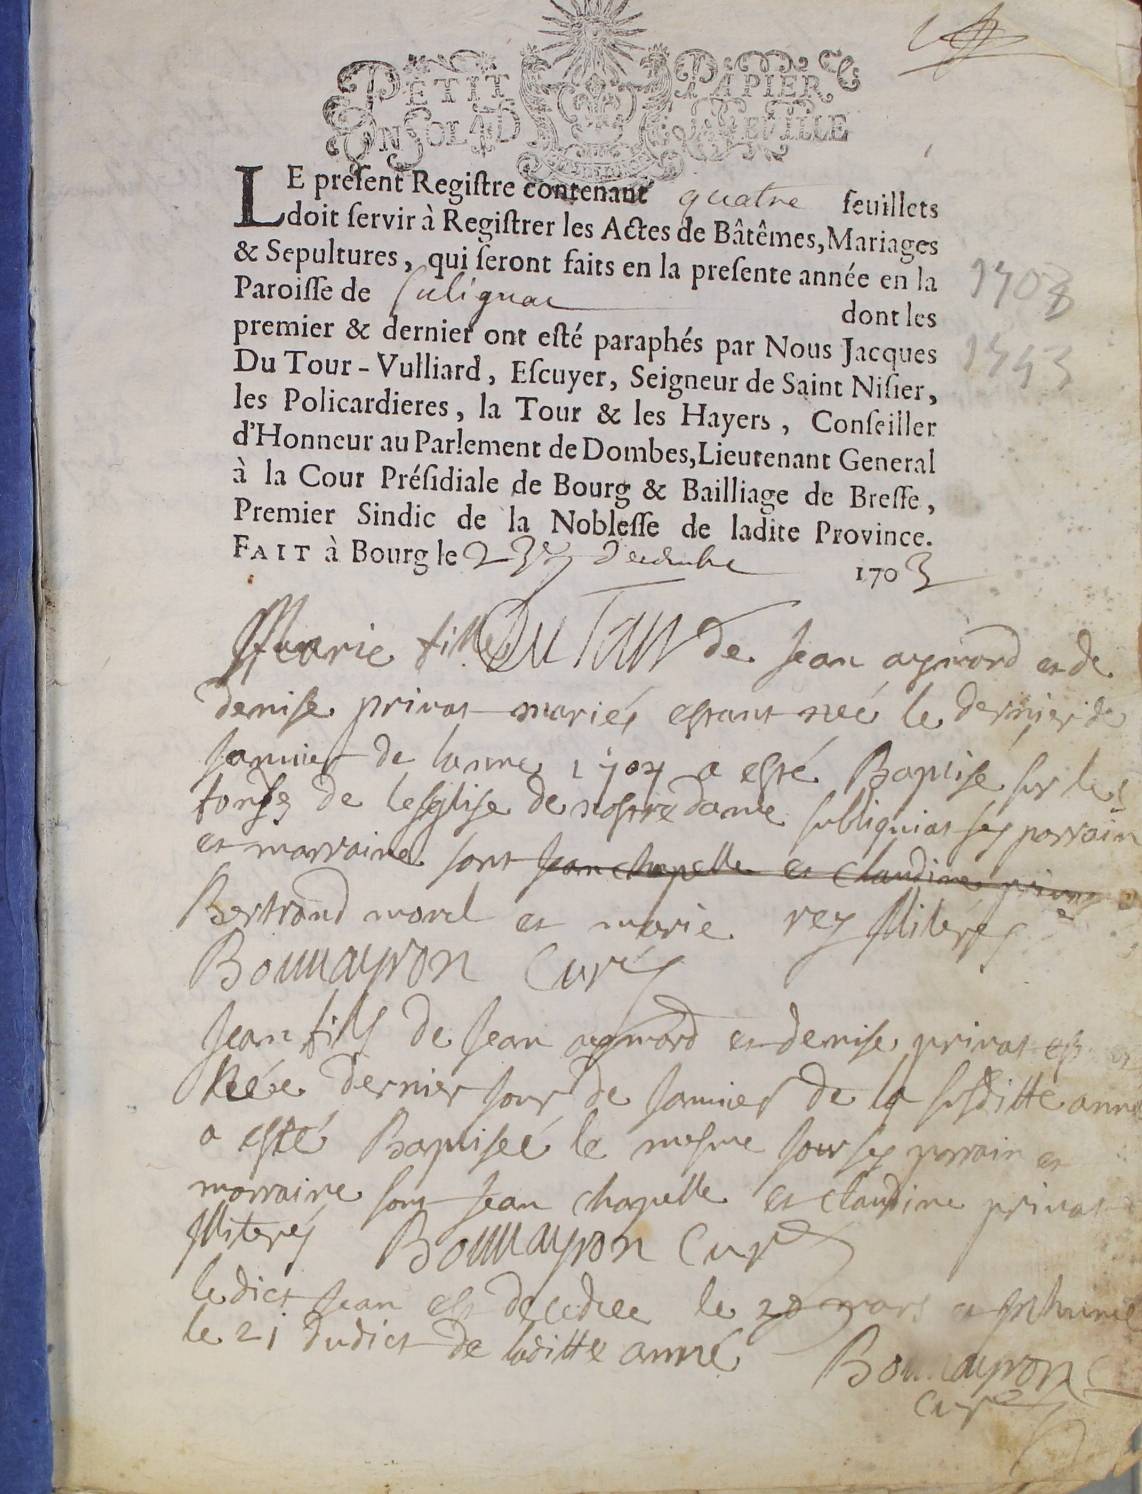 PETIT PAPIER
UN SOL 4 D LA FEUILLE
LE preſent Regiſtre contenant quatre feuillets
doit ſervir à Regiſtrer les Actes de Bâtêmes, Mariages
& Sepultures, qui ſeront faits en la preſente année en la
Paroiſſe de Sulignac dont les
1703
premier & dernier ont eſté paraphés par Nous Jacques
Du Tour - Vulliard, Eſcuyer, Seigneur de Saint Niſier,
les Policardieres, la Tour & les Hayers, Conſeiller
d'Honneur au Parlement de Dombes, Lieutenant General
à la Cour Préſidiale de Bourg & Bailliage de Breſſe,
Premier Sindic de la Nobleſſe de ladite Province.
FAIT à Bourg le 23 decembre 1703
Du Tour
Marie fille de Jean aymord et de
denise privat mariés estant née le dernier de
Janvier de lanne 1704 a esté Baptise sur les
fonds de lesglise de nostre dame subliguiat ses parrain
et marraine sont Jean chapelle et claudine privat
Bertrand morel et marie rey Illiterés
Bonnayron Curé
Jean fils de Jean aymord et denise privat est
Née dernier Jour de Janvier de la susditte anné
a esté Baptiseé le mesme Jour ses parrain et
marraine sont Jean chapelle et claudine privat
Illiterés Bonnayron Curé
le dict Jean est decedeé le 20 mars et Inhumé
le 21 dudict de laditte anné Bonnayron
Curé